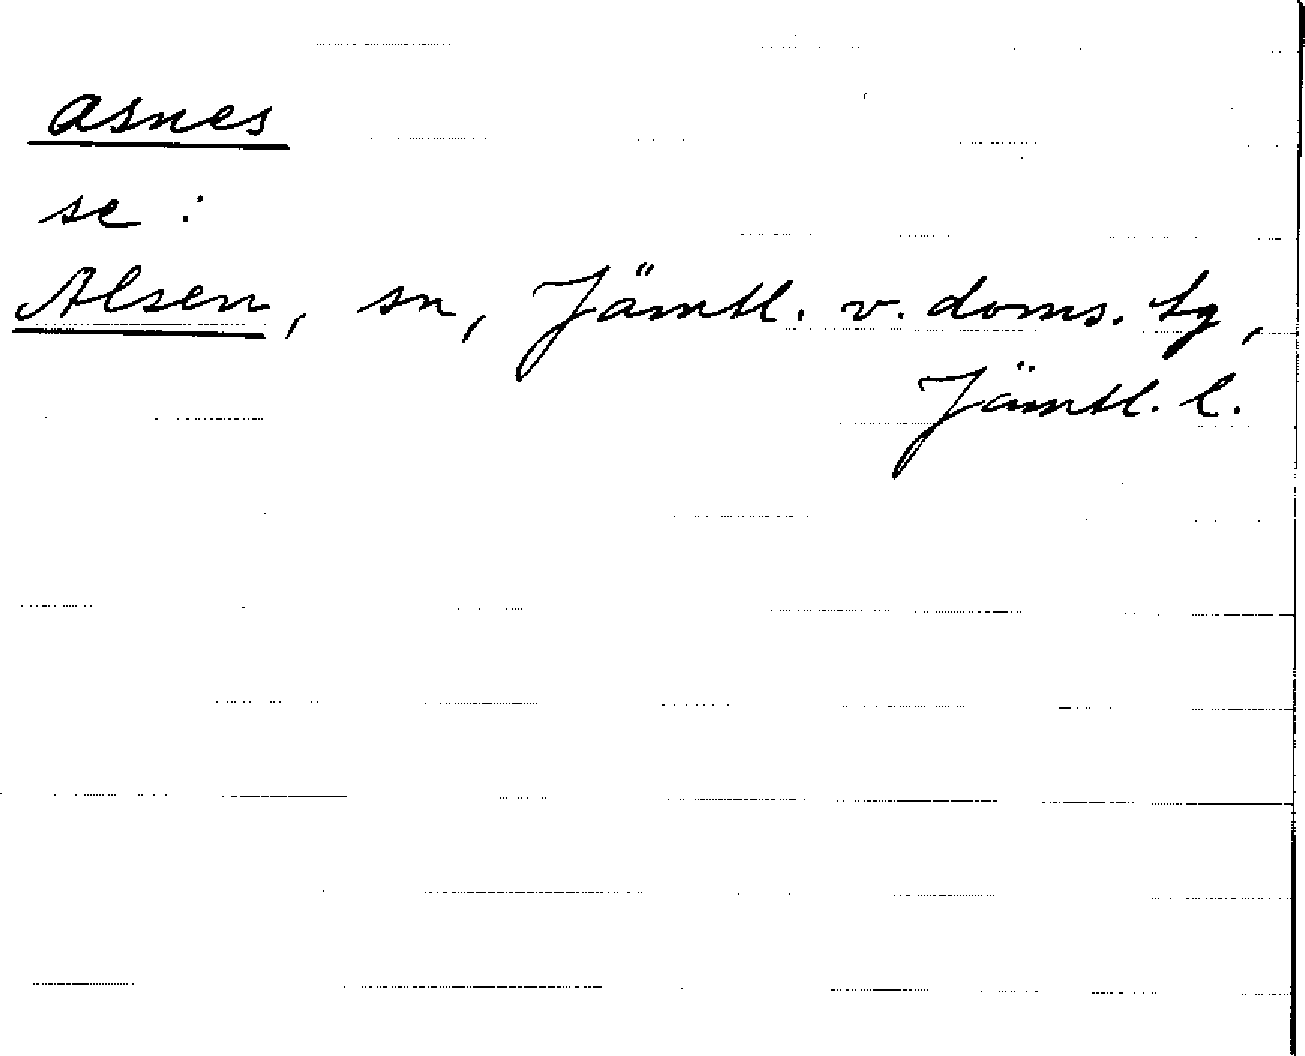 asnes
se :
Alsen, sn, Jämtl. v. doms. tg,
Jämtl. l.